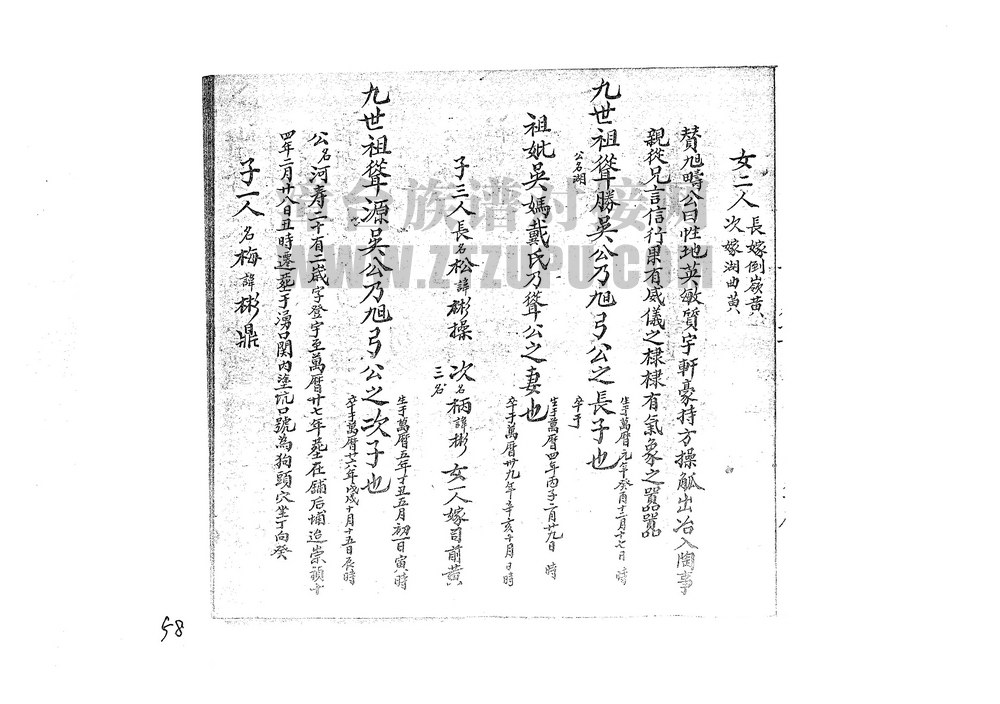 女二人 長嫁倒嶺黃
次嫁湖曲黃
贊旭疇公曰性地英敏質宇軒豪持方操觚出冶入陶事
親從兄言信行果有威儀之棣棣有氣象之嚣嚣
九世祖聳勝吳公乃旭弓公之長子也
公名湖
生于萬曆元年癸酉十二月十七日 時
卒于
祖妣吳媽戴氏乃聳公之妻也
生于萬曆四年丙子二月廿九日 時
卒于萬曆卅九年辛亥十月 日時
子三人長名松諱彬操 次名柄諱彬 女一人嫁司前黃
三名
九世祖聳源吳公乃旭弓公之次子也
生于萬曆五年丁丑五月初一日寅時
卒于萬曆廿六年戊戌十月十五日辰時
公名河寿二十有二歲字登宇至萬曆廿七年葬在鋪后埔迨崇禎十
四年二月廿八日丑時遷葬于湧口関内塗坑口號為狗頭穴坐丁向癸
子一人 名梅諱彬鼎
章台族谱对接网
WWW.ZTZUPU.COM
58